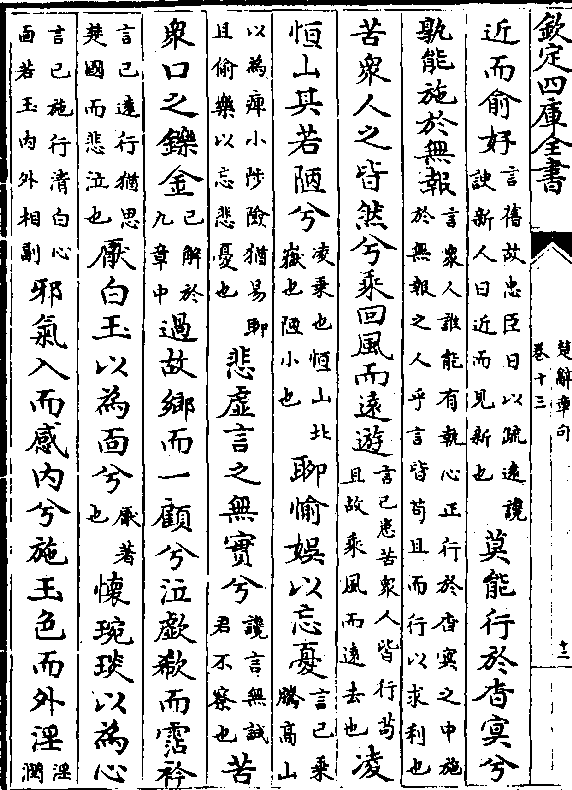 欽定四庫全書
楚辭章句
卷十三
十二
近而俞好言舊故忠臣日以疏逺讒諛新人日近而見新也莫能行於杳冥兮
孰能施於無報言衆人誰能有執心正行於杳冥之中施於無報之人乎言皆苟且而行以求利也
苦衆人之皆然兮乘回風而逺遊言已患苦衆人皆行苟且故乘風而逺去也凌
恒山其若陋兮凌乘也恒山北嶽也陋小也聊愉娛以忘憂言已乘騰高山
以為痺小陟險猶易聊且偷樂以忘悲憂也悲虛言之無實兮讒言無誠君不察也苦
衆口之鑠金已解於九章中過故鄉而一顧兮泣歔欷而霑衿
言已逺行猶思楚國而悲泣也厭白玉以為面兮厭著也懷琬琰以為心
言已施行清白心面若玉內外相副邪氣入而感內兮施玉色而外淫淫潤